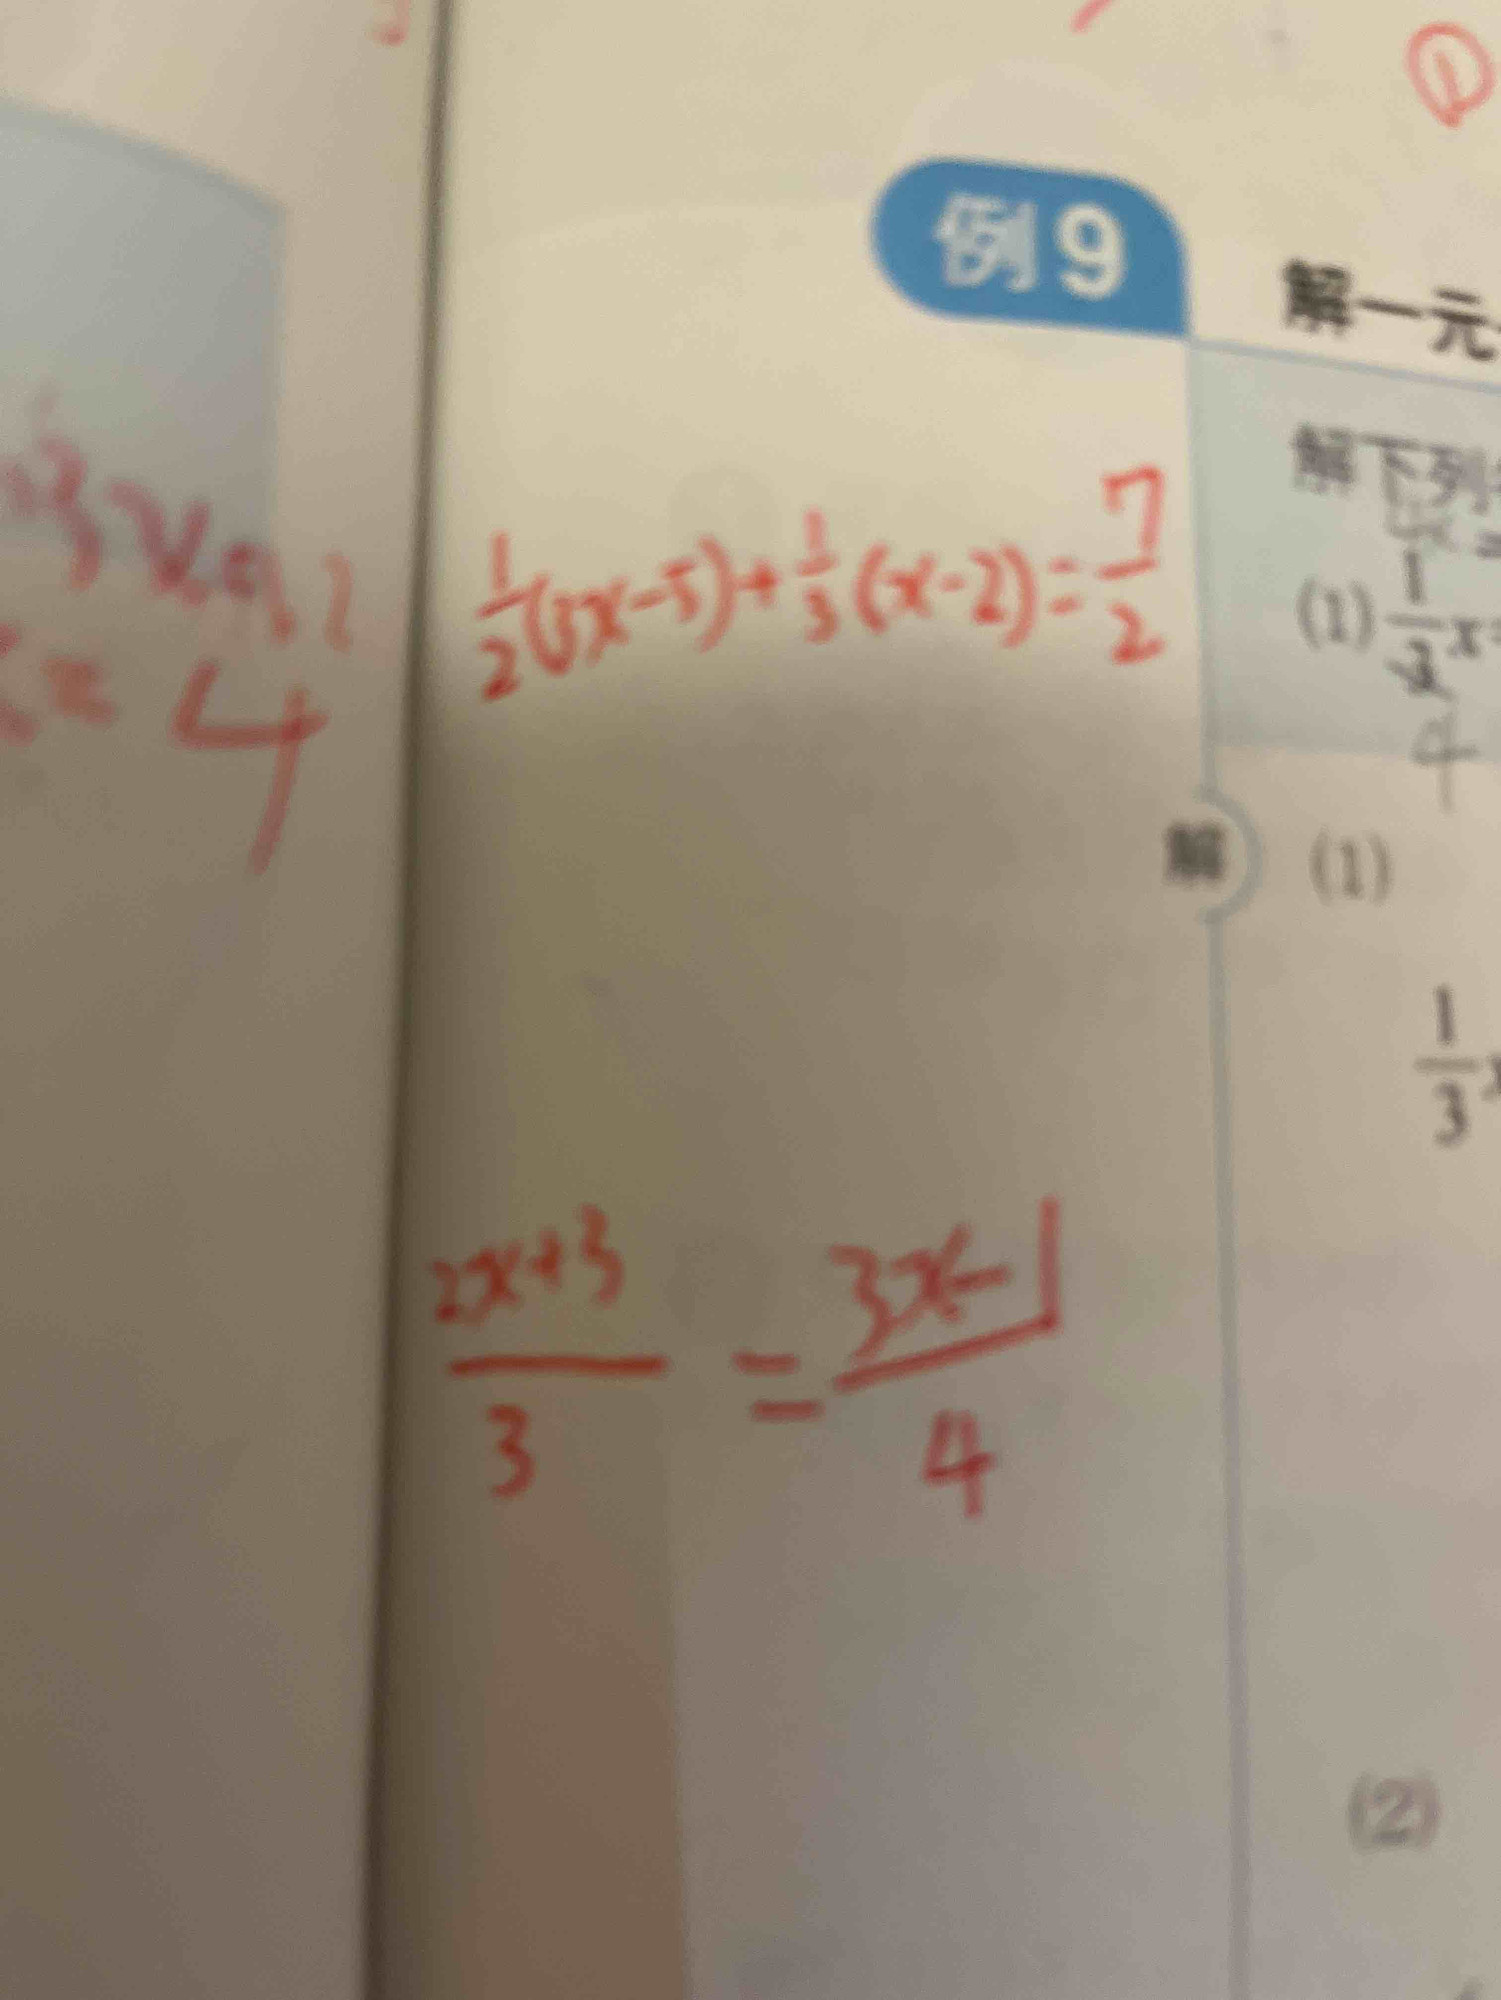 例9
解一元
解下列
(1) 1/3 x
4
1/2(3x-5)+1/3(x-2)=7/2
= 4
解 (1)
1/3
(2x+3)/3 = (3x-1)/4
(2)